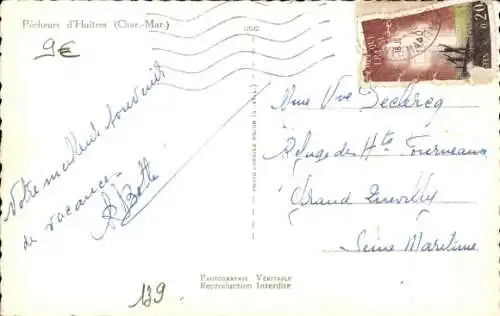 Pêcheurs d'Huîtres (Char.-Mar.)
9€
0.20
Votre meilleur souvenir
de vacances
Mme Vve Declercq
Refuge des Hts Fourneaux
Grand Quevilly
Seine Maritime
139
Photographie Véritable
Reproduction Interdite